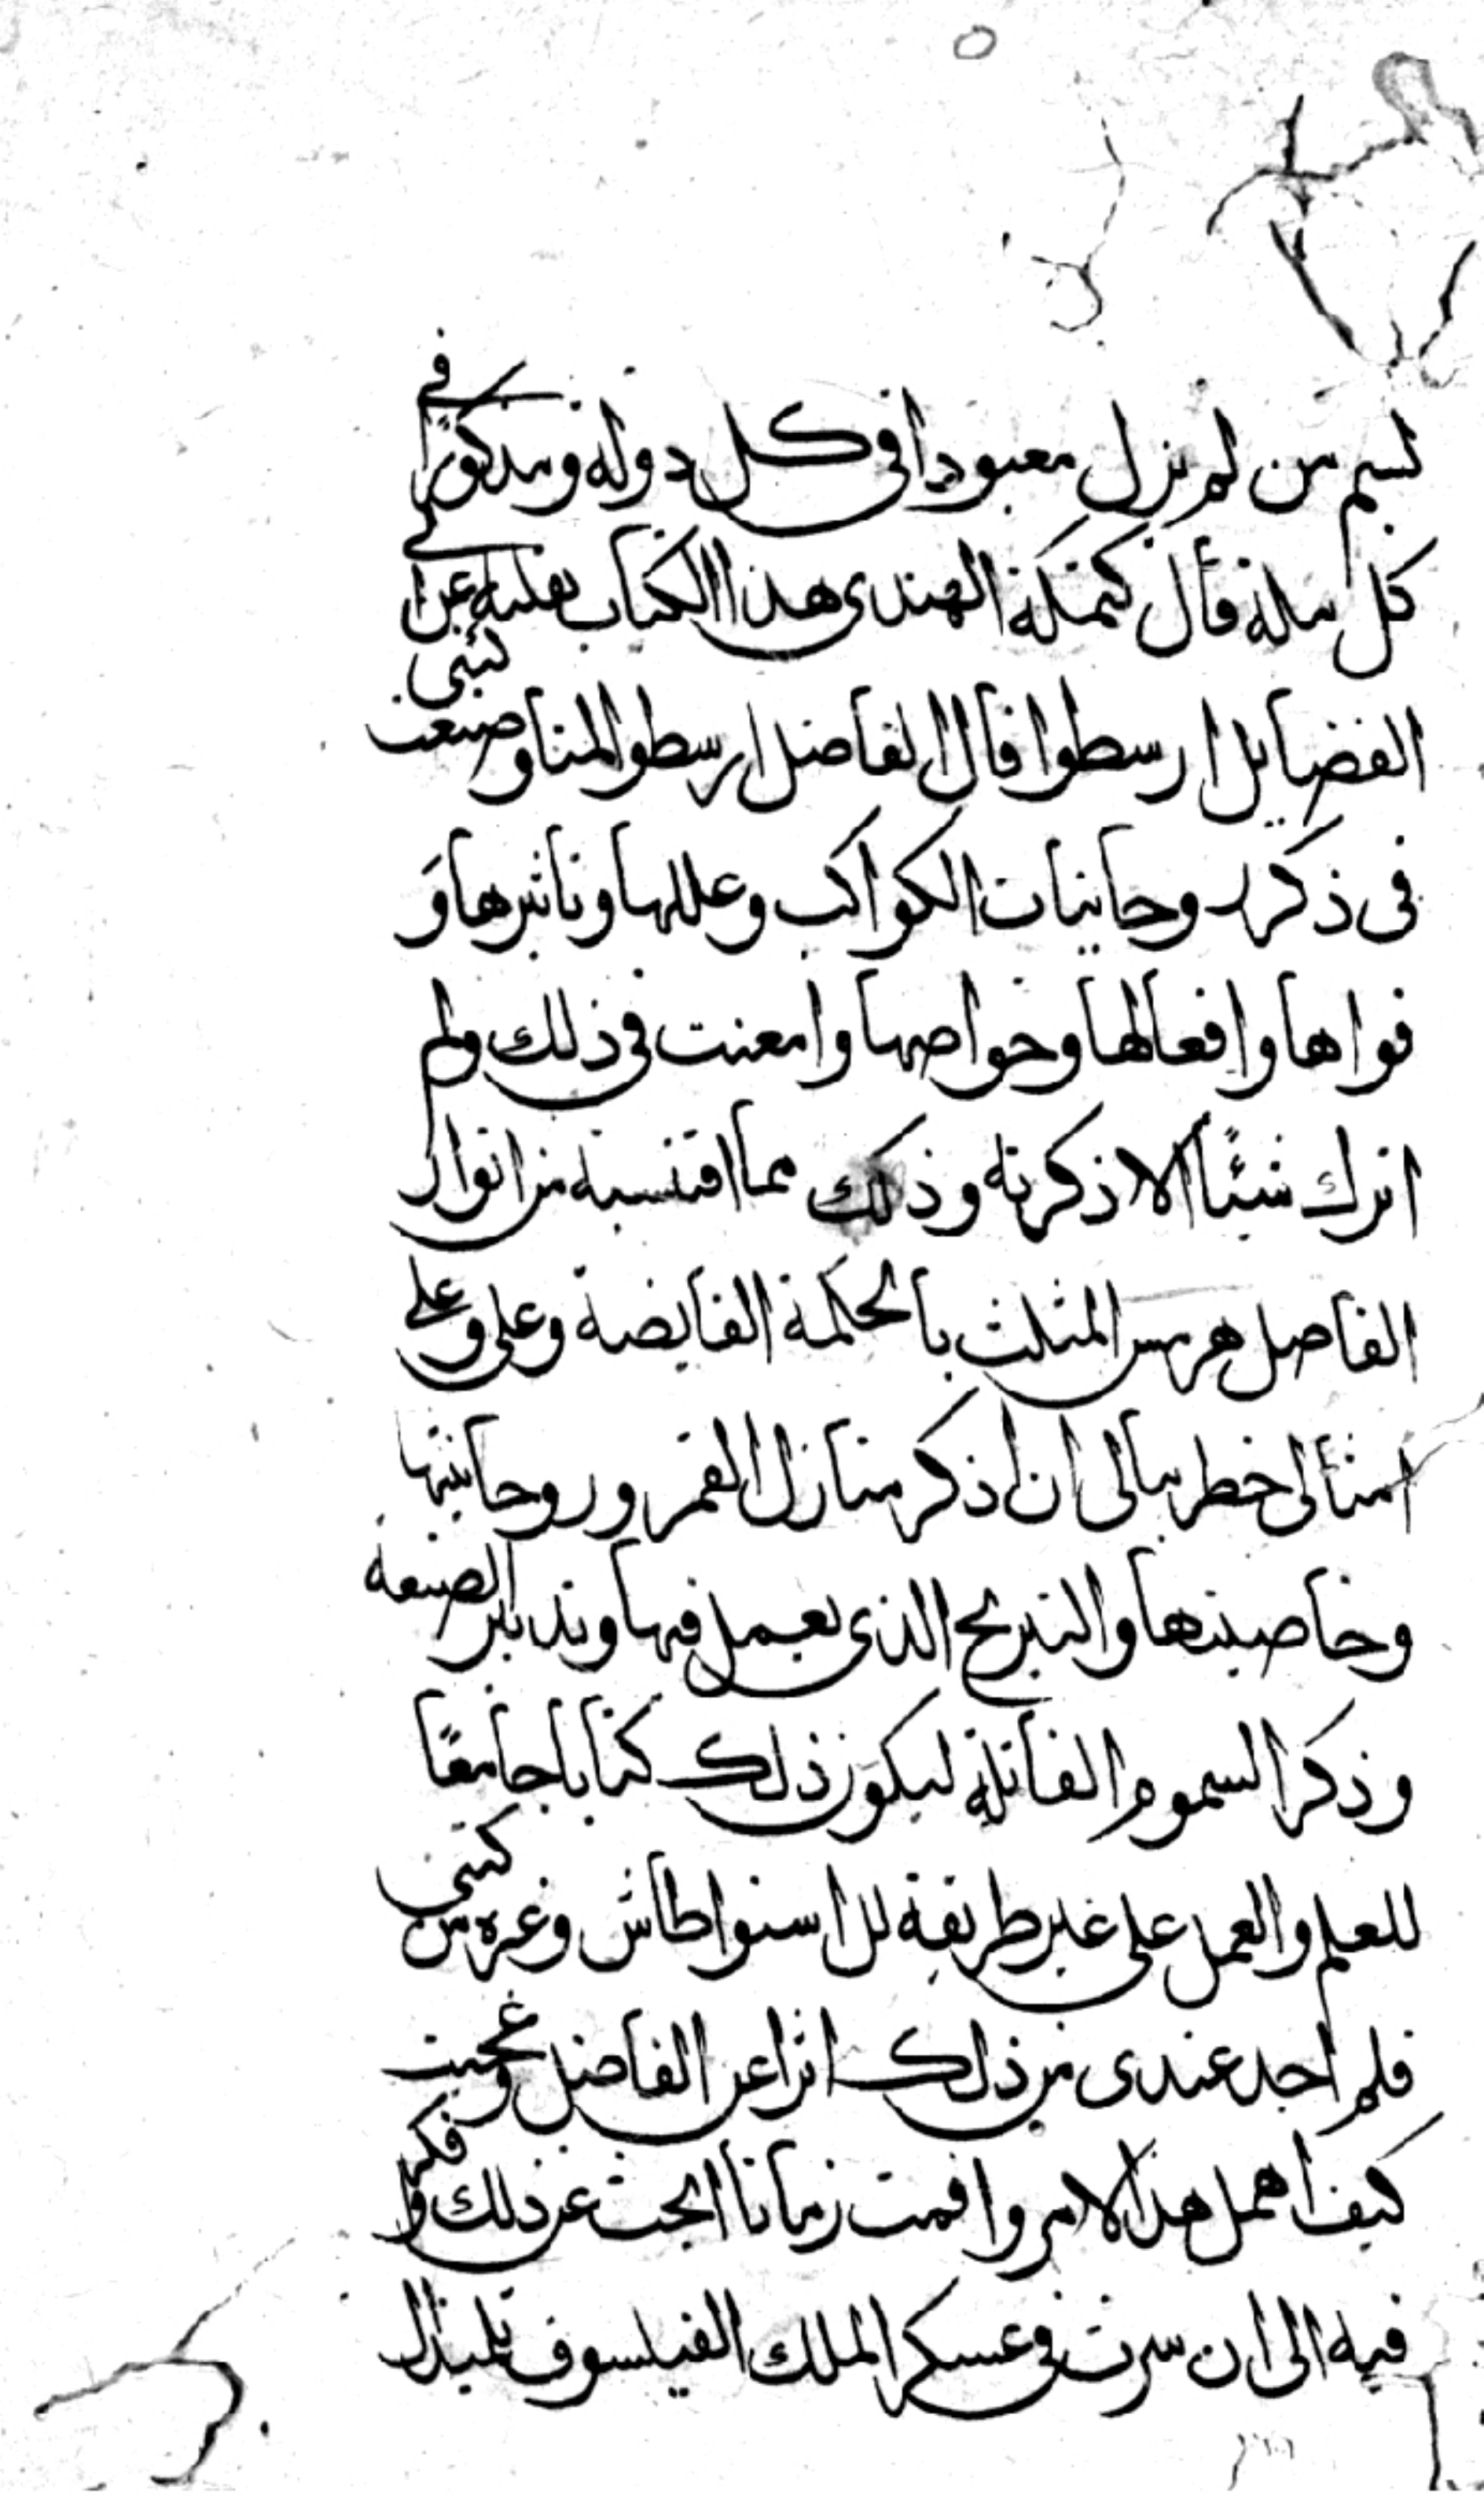 بسم من لم يزل معبودا في كل دولة ومذكورًا في
كل ملة قال كنكة الهندي هذا الكتاب نقلته عن ا لي
الفضايل ارسطوا قال الفاضل ارسطو المنا وضعت كتبي
في ذكر روحانيات الكواكب وعللها وتاثيرها وَ
قواها وافعالها وخواصها وامعنت في ذلك ولم
اترك شيئًا الا ذكرته وذلك مما اقتبسته من انوار
الفاضل هرمس المثلث بالحكمة الفايضة وعلي وعلى
امثالي خطر ببالي ان اذكر منازل القمر وروحانيتها
وخاصيتها والنيرنج الذي يعمل فيها وتدابير الصنعة
وذكر السموم القاتلة ليكون ذلك كتابا جامعًا
للعلم والعمل على غير طريقة للاسنواطاش وغيره من كتبي
فلم اجد عندي من ذلك اثرا عن الفاضل وعجبت
كيف اهمل هذا الامر واقمت زمانا ابحث عن ذلك وافكر
فيه الى ان سرت في عسكر الملك الفيلسوف تلميذ ال